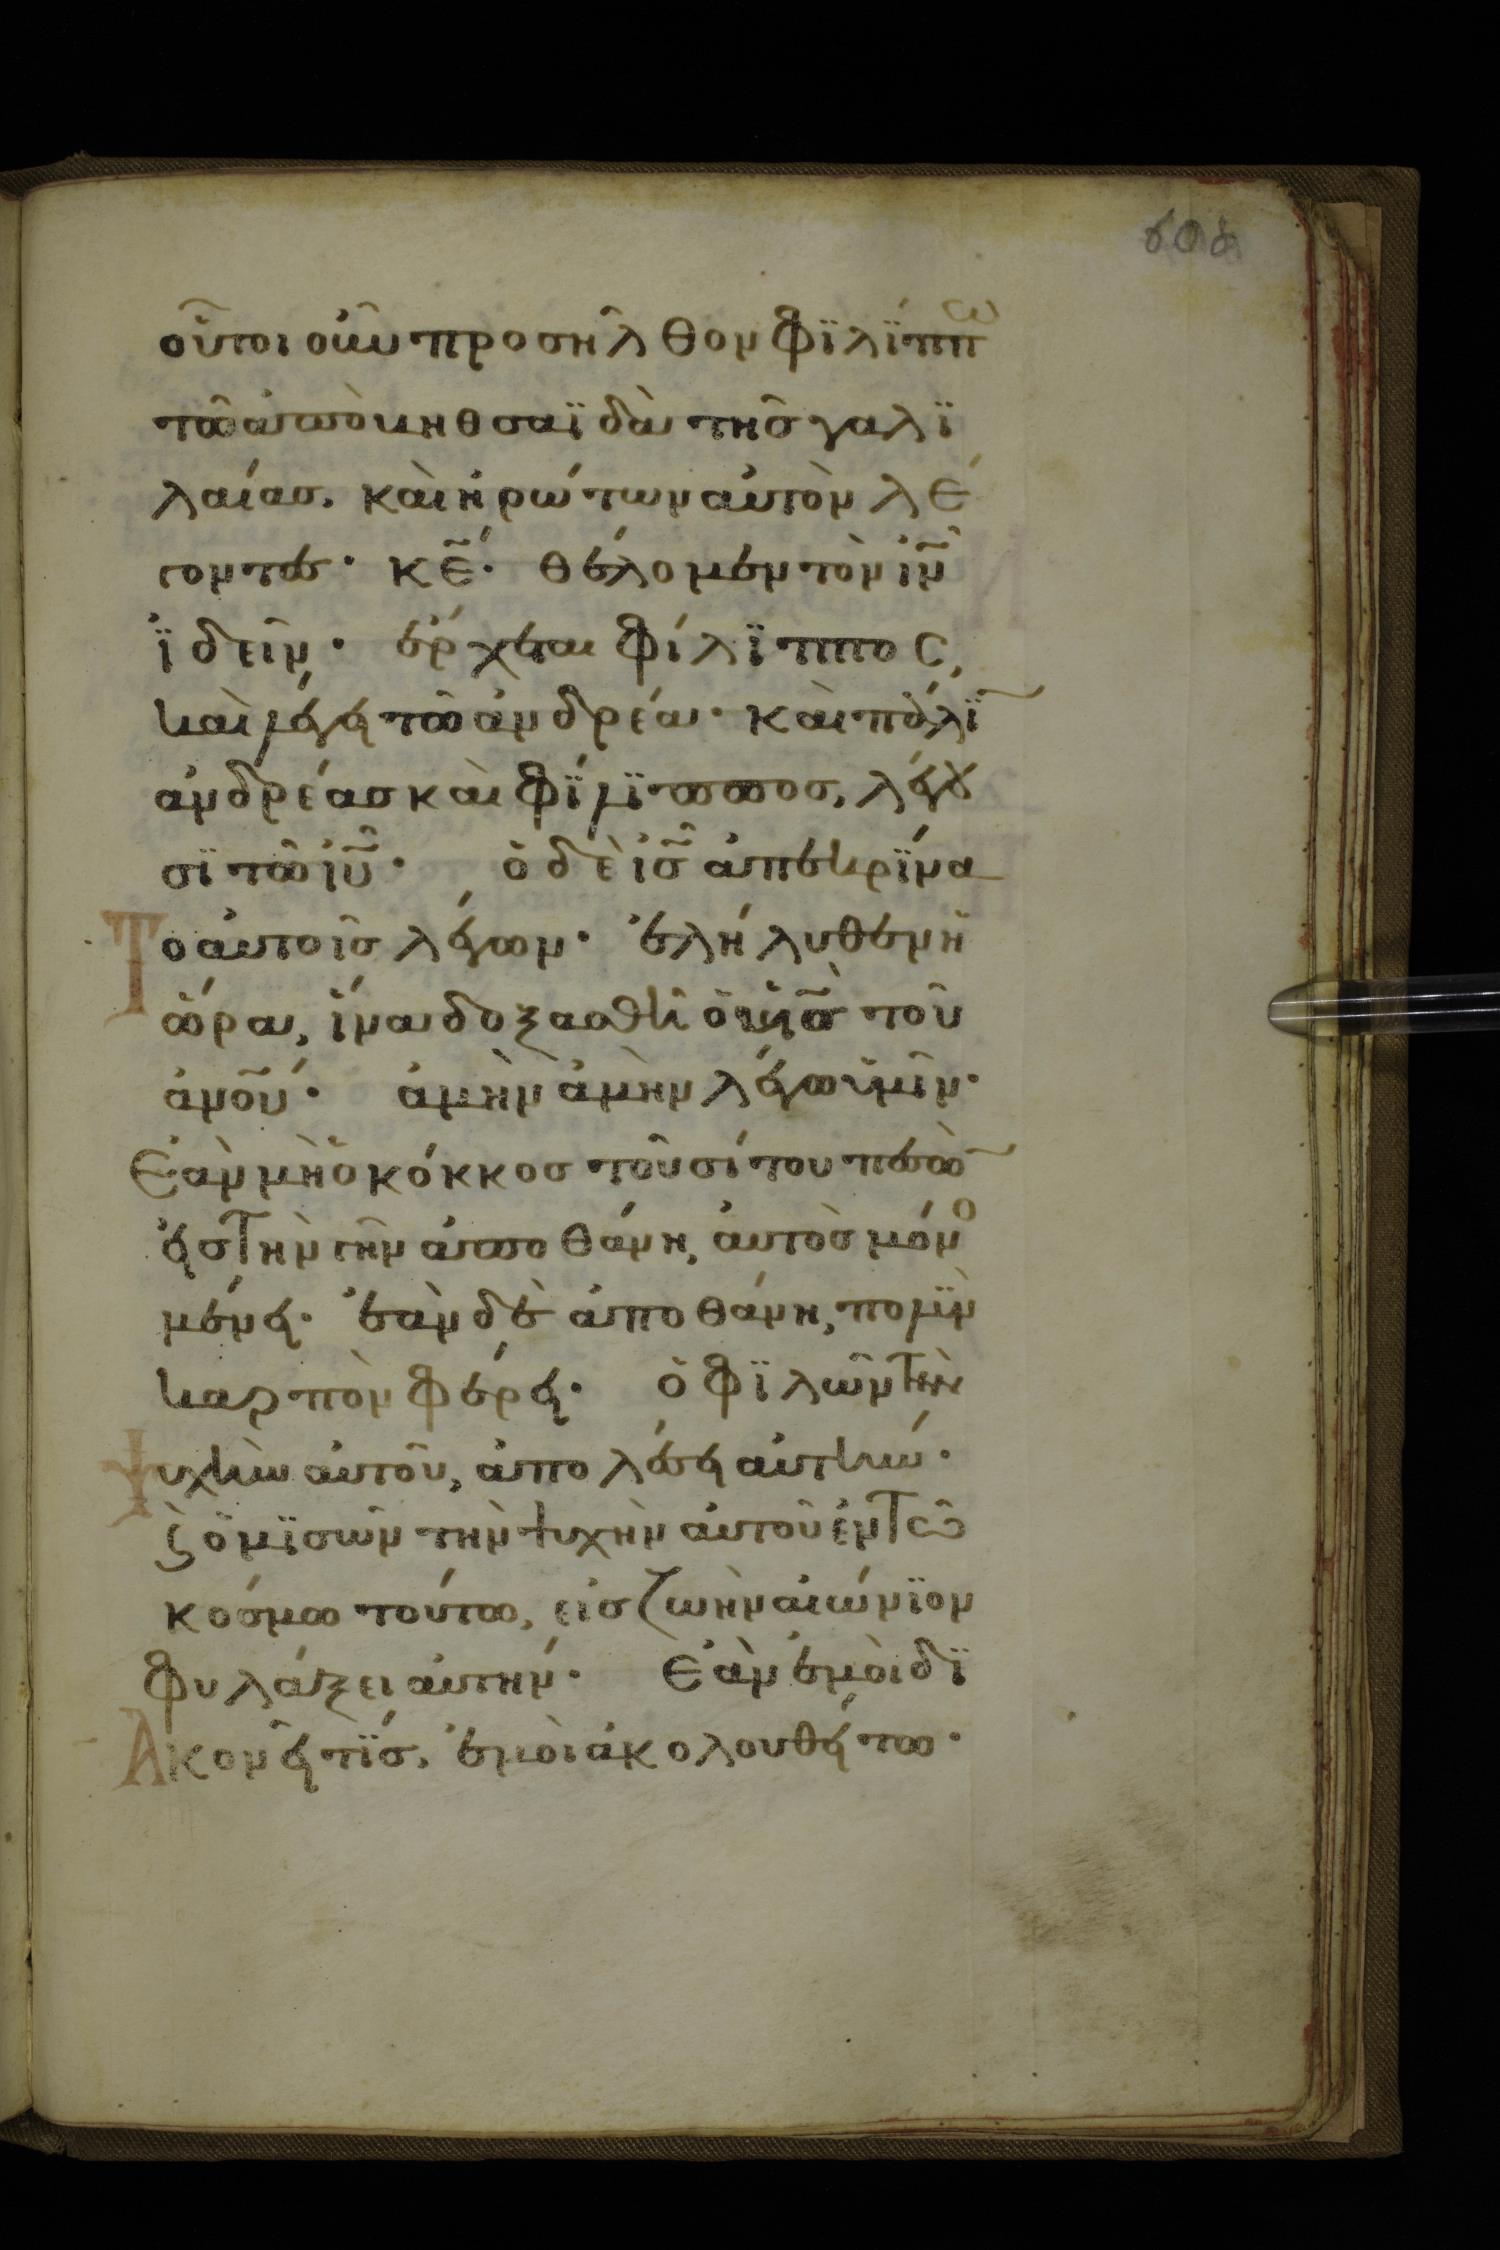 οὗτοι οὖν προσῆλθον φϊλΐππω
τῶ ἀπὸ βηθσαϊδὰ τῆς γαλϊ
λαίας, καὶ ἠρώτων αὐτὸν λέ
γοντες· κε̄· θέλομεν τὸν ιν̄
ἰδεῖν· ἔρχεται φίλϊππος,
καὶ λέγει τῶ ἀνδρέα· καὶ πάλϊ̄
ἀνδρέας καὶ φΐλϊππος, λέγου
σϊ τῶ ιῡ· ὁ δὲ ις̄ ἀπεκρΐνα
το αὐτοῖς λέγων· ἐλήλυθεν ἡ
ὥρα, ἵνα δοξασθῆ ὁ υἱς̄ τοῦ
ἀνοῦ· ἀμὴν ἀμὴν λέγω ὑμῖν·
Ἐὰν μὴ ὁ κόκκος τοῦ σίτου πεσὼ̄
εἰς τὴν γῆν ἀποθάνη, αὐτὸς μόνο
μένει· ἐὰν δὲ ἀποθάνη, πολῒν
καρπὸν φέρει· ὁ φϊλῶν τὴν
ψυχὴν αὐτοῦ, ἀπολέσει αὐτήν·
ϗ ὁ μϊσῶν τὴν ψυχὴν αὐτοῦ ἐν τῶ
κόσμω τούτω, εἰς ζωὴν αἰώνϊον
φυλάξει αὐτήν· Ἐὰν ἐμοὶ δϊ
ακονεῖ τϊς, ἐμοὶ ἀκολουθείτω·